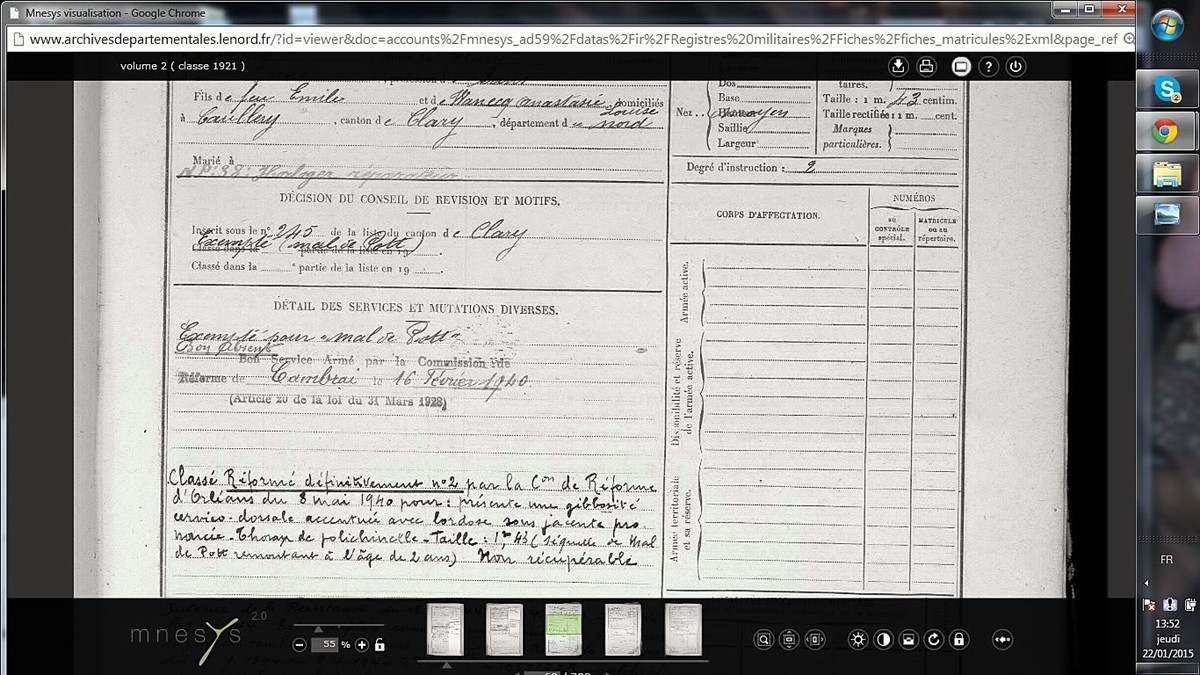 Mnesys visualisation - Google Chrome
www.archivesdepartementales.lenord.fr/?id=viewer&doc=accounts%2Fmnesys_ad59%2Fdatas%2Fir%2FRegistres%20militaires%2FFiches%2Ffiches_matricules%2Exml&page_ref
volume 2 ( classe 1921 )
Fils de feu Emile et de Wanecq Anastasie Louise domiciliés
à Caullery, canton de Clary, département du nord
Marié à
N.P: 38: Horloger réparateur
DÉCISION DU CONSEIL DE REVISION ET MOTIFS.
Inscrit sous le n° 245 de la liste du canton de Clary
Exempté (mal de Pott)
Classé dans la partie de la liste en 19
Classé dans la partie de la liste en 19
DÉTAIL DES SERVICES ET MUTATIONS DIVERSES.
Exempté pour "mal de Pott"
Bon Absent
Bon Service Armé par la Commission de
Réforme de Cambrai le 16 Février 1940.
(Article 20 de la loi du 31 Mars 1928)
Classé Réformé définitivement n°2 par la Con de Réforme
d'Orléans du 8 mai 1940 pour: présente une gibbosité
cervico-dorsale accentuée avec lordose sous jacente pro-
noncée. Thorax de polichinelle - Taille: 1m43 (séquelle de Mal
de Pott remontant à l'âge de 2 ans) Non récupérable
Nez..
Dos
Base
moyen
Saillie
Largeur
taires.
Taille : 1 m. 43 centim.
Taille rectifiée : 1 m. cent.
Marques
particulières.
Degré d'instruction : 2
CORPS D'AFFECTATION.
NUMÉROS
au
CONTRÔLE
spécial.
MATRICULE
ou au
répertoire.
Armée active.
Disponibilité et réserve
de l'armée active.
Armée territoriale
et sa réserve.
mnesys 2.0
55 %
FR
13:52
jeudi
22/01/2015